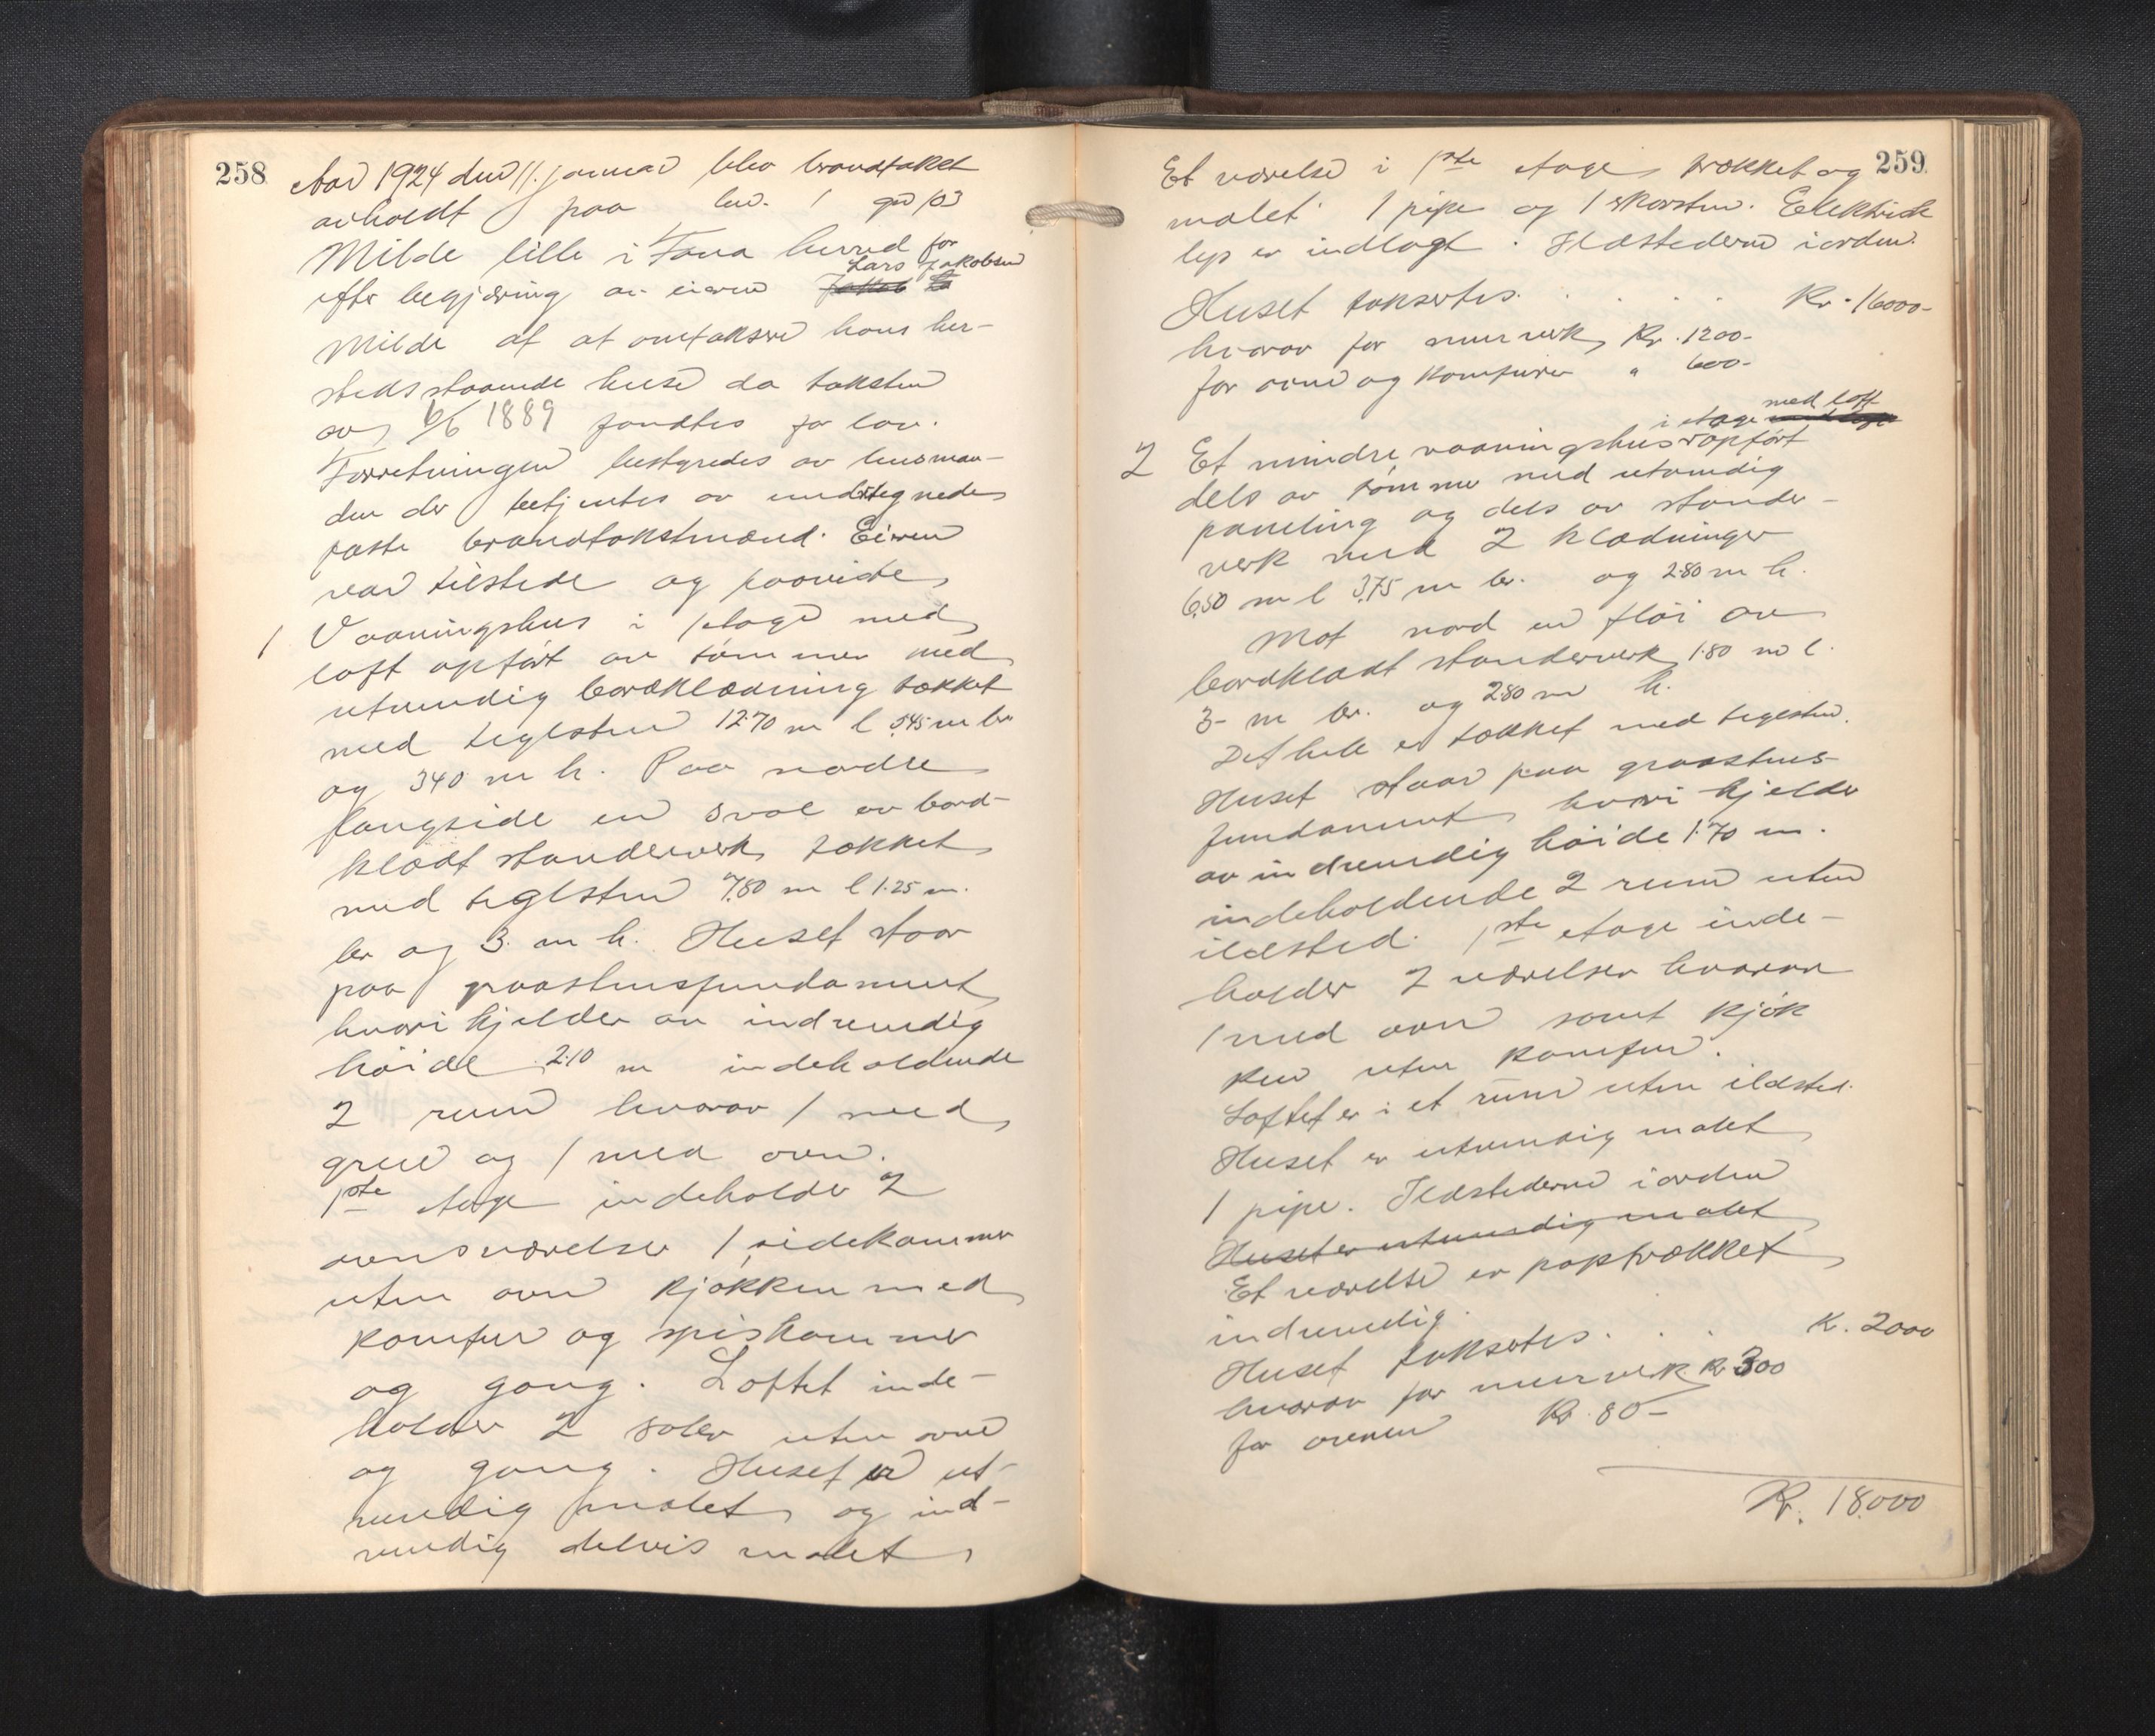 258
Aar 1924 den 11. januar blev brandtakst
avholdt paa bno. 1 gno 103
Milde lille i Fana herred for
Lars Jakobsen
efter begjæring av eieren
Milde af at omtaksere hans her-
steds staaende huse da taksten
av 6/6 1889 fandtes for lav.
Forretningen bestyredes av lensman-
den der betjentes av undertegnede
faste brandtakstmænd. Eieren
var tilstede og paaviste
1 Vaaningshus i 1 etage med
loft opført av tømmer med
utvendig bordklædning tækket
med teglsten 12.70 m l 5.45 m br
og 340 m h. Paa nordre
langside en sval av bord-
klædt standerverk tækket
med teglsten 7.80 m l 1.25 m.
br og 3. m h. Huset staar
paa graastensfundament
hvori kjelder av indvendig
høide 2.10 m indeholdende
2 rum hvorav 1 med
grue og 1 med ovn.
1ste etage indeholder 2
ovnsværelser 1 sidekammer
uten ovn kjøkken med
komfur og spiskammer
og gang. Loftet inde-
holder 2 saler uten ovne
og gang. Huset er ut-
vendig malet og ind-
vendig delvis malet
259
Et værelse i 1ste etage trækket og
malet 1 pipe og 1 skorsten. Elektrisk
lys er indlagt. Ildstederne iorden.
Huset taksertes . . . . Kr. 16000-
hvorav for murverk Kr. 1200-
for ovne og komfurer " 600-
med loft
i etage
2 Et mindre vaaningshus opført
dels av tømmer med utvendig
paneling og dels av stander-
verk med 2 klædninger
6.50 m l 3.75 m br. og 2.80 m h.
Mot nord en fløi av
bordklædt standerverk 1.80 m l.
3- m br. og 2.80 m h.
Det hele er tækket med teglsten.
Huset staar paa graastens-
fundament hvori kjelder
av indvendig høide 1.70 m.
indeholdende 2 rum uten
ildsted. 1ste etage inde-
holder 2 værelser hvorav
1 med ovn samt kjøk
ken uten komfur.
Loftet er i et rum uten ildsted.
Huset er utvendig malet
1 pipe. Ildstederne iorden
Huset er utvendig malet
Et værelse er paptrækket
indvendig.
Huset taksertes . . . K. 2000
hvorav for murverk Kr 300
for ovnen Kr. 80-
Kr. 18.000